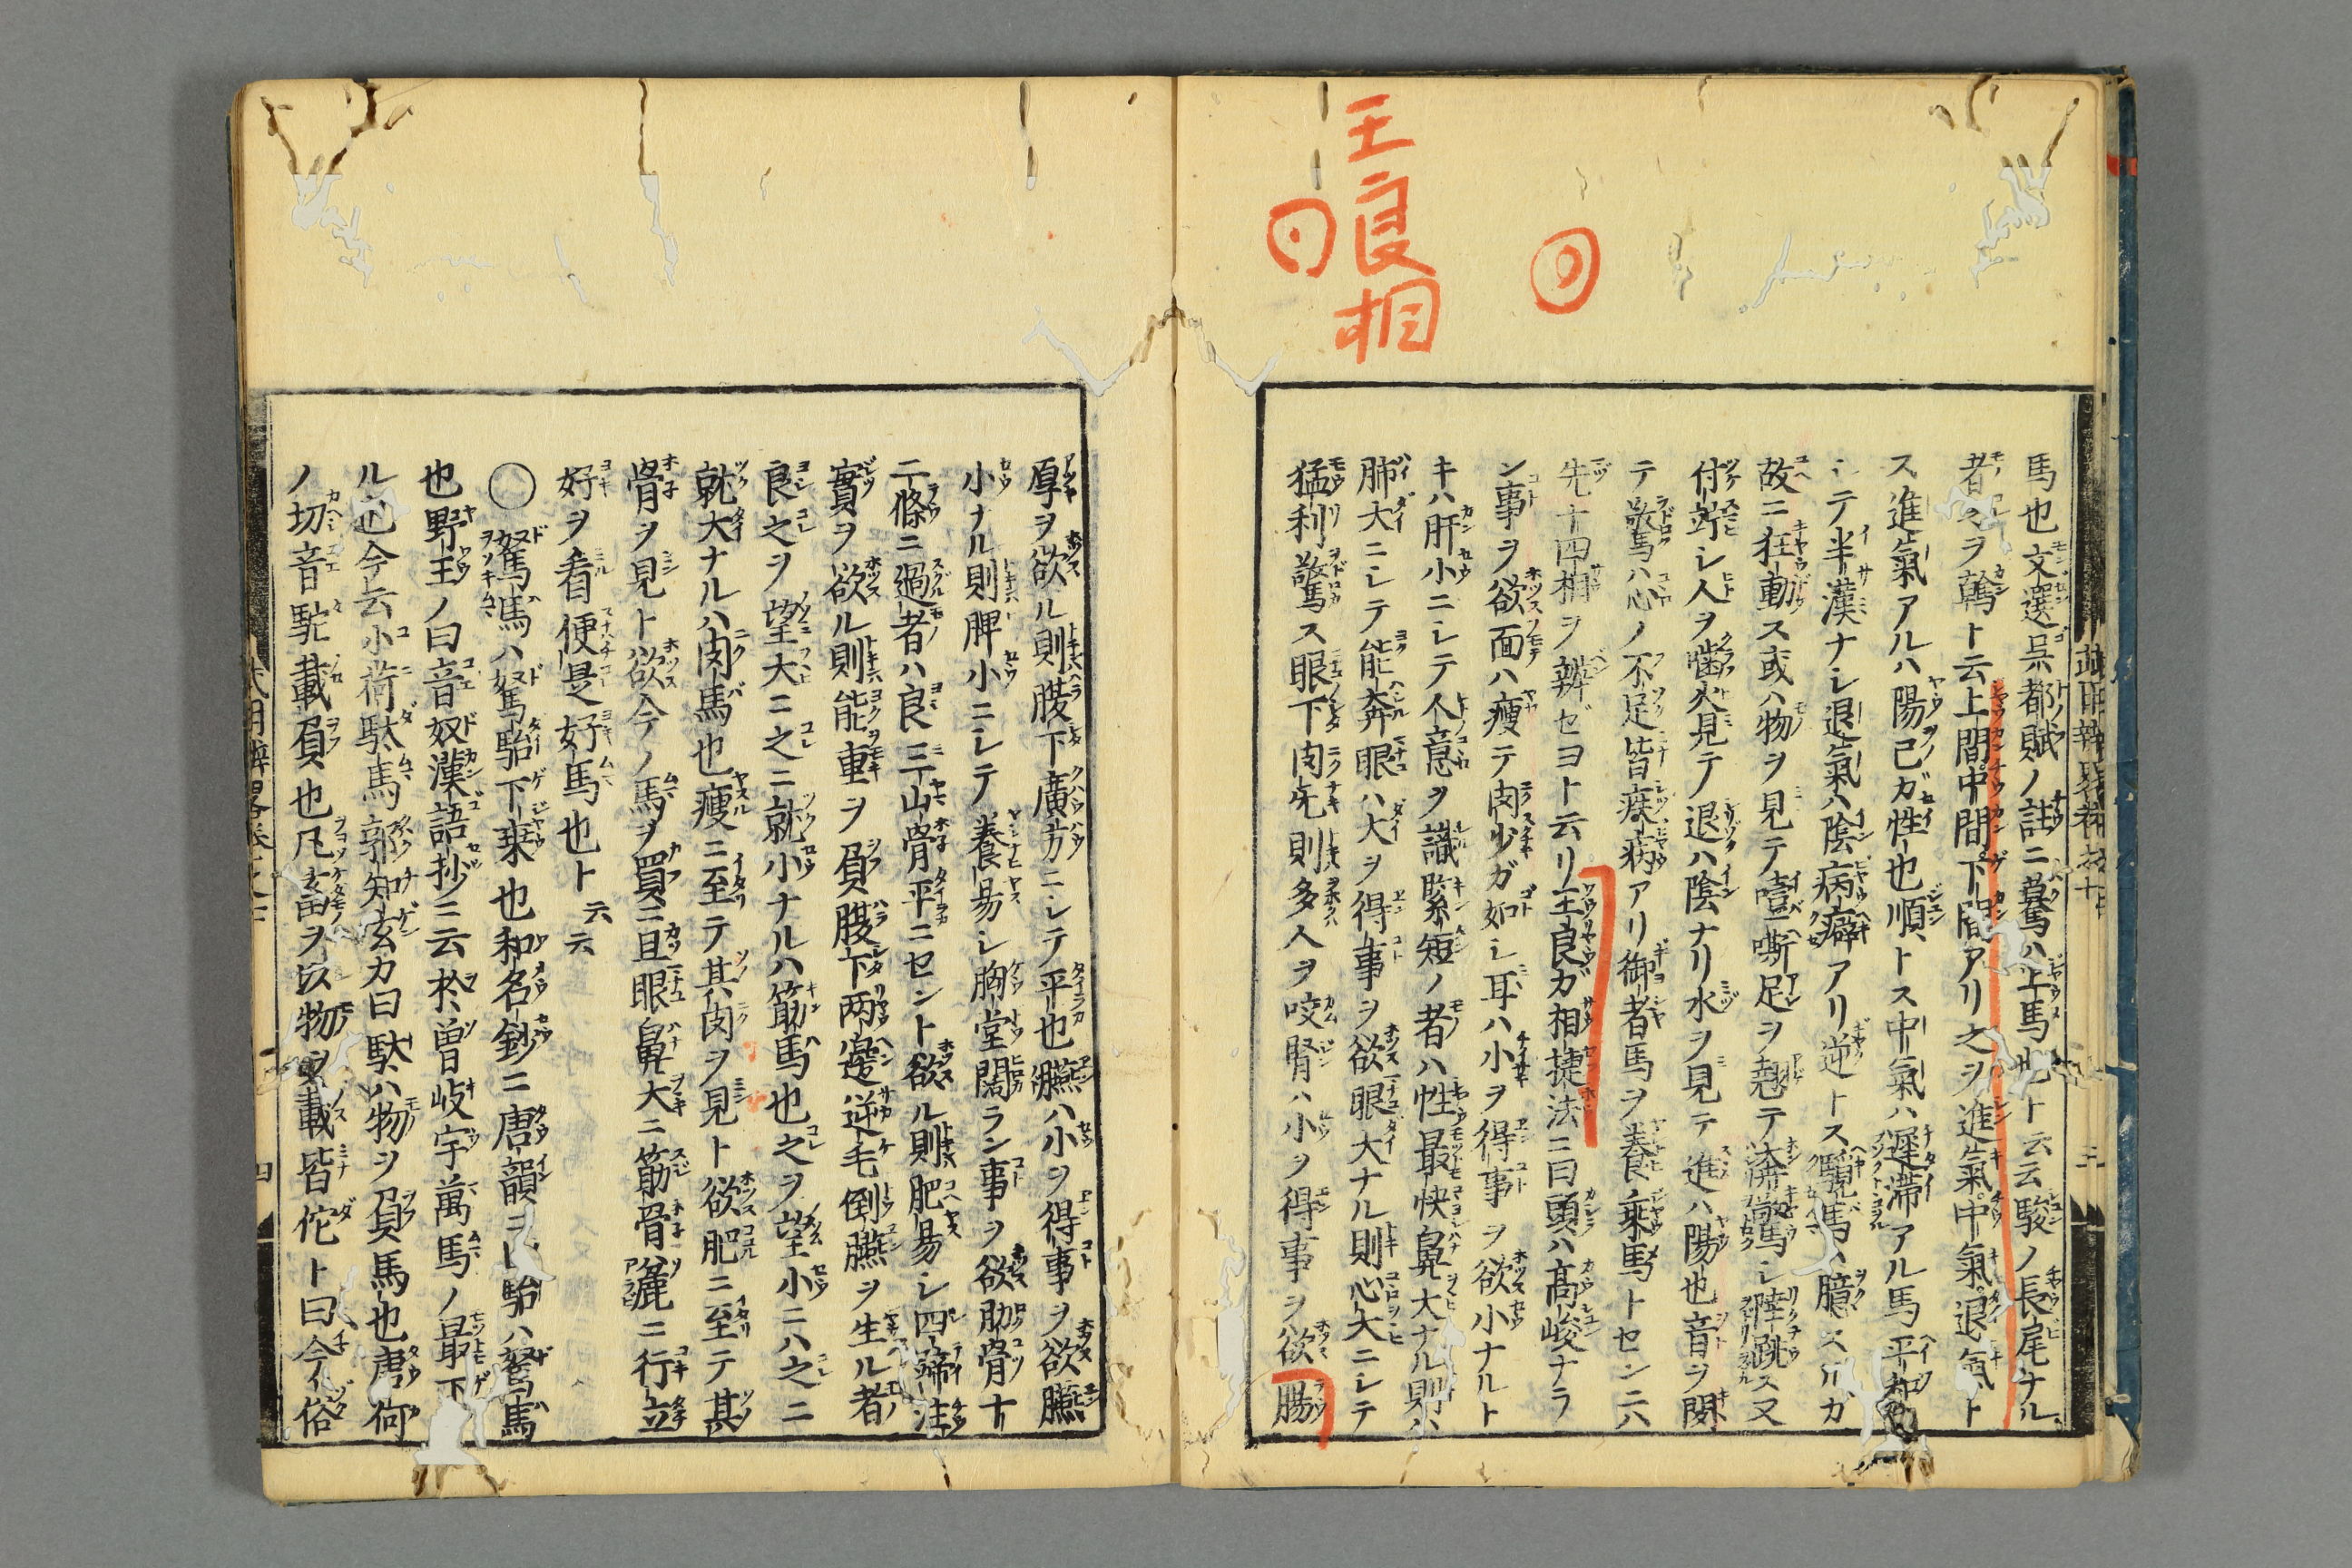 王良相
馬也文選呉都賦ノ註ニ驀ハ上馬也ト云云駿ノ長尾ナル
者ヲ鶾ト云上間中間下間アリ之ヲ進氣中氣退氣ト
ス進氣アルハ陽己ガ性也順トス中氣ハ遲滯アル馬平
シテ半漢ナシ退氣ハ陰病癖アリ逆トス馬臆スルカ
故ニ狂動ス或ハ物ヲ見テ噎嘶足ヲ翹テ驚シ跳ス又
付嘶シ人ヲ嚙火見テ退ハ陰ナリ水ヲ見テ進ハ陽也音ヲ聞
テ驚ハ心ノ不足皆疾病アリ御者馬ヲ養乘馬トセンニハ
先十四相ヲ辨ゼヨト云リ王良ガ相捷法ニ曰頭ハ髙峻ナラ
ン事ヲ欲面ハ瘦テ肉少ガ如シ耳ハ小ヲ得事ヲ欲小ナルト
キハ肝小ニシテ人意ヲ識緊短ノ者ハ性最快鼻大ナル則ハ
肺大ニシテ能奔眼ハ大ヲ得事ヲ欲眼大ナル則心大ニシテ
猛利驚ス眼下肉旡則多人ヲ咬腎ハ小ヲ得事ヲ欲腸
厚ヲ欲ル則腹下廣方ニシテ平也臕ハ小ヲ得事ヲ欲臕
小ナル則脾小ニシテ養易シ胸堂闊ラン事ヲ欲肋骨十
二條ニ過者ハ良三山骨平ニセント欲ル則肥易シ四蹄注
實ヲ欲ル則能重ヲ負腹下両邉逆毛倒臕ヲ生ル者
良之ヲ望大ニ之ニ就小ナルハ筋馬也之ヲ望小ニハ之ニ
就大ナルハ肉馬也瘦ニ至テ其肉ヲ見ト欲肥ニ至テ其
骨ヲ見ト欲今ノ馬ヲ買ニ且眼鼻大ニ筋骨麁ニ行立
好ヲ看便是好馬也ト云云
〇駑馬ハ駑駘下乗也和名鈔ニ唐韻ヲ駘ハ駑馬
也野王ノ曰音奴漢語抄ニ云於曽岐宇萬馬ノ最下
ル也今云小荷駄馬郭知玄カ曰駄ハ物ヲ負馬也唐何
ノ切音駝載負也凡畜ヲ以物ヲ載皆佗ト曰今俗
四